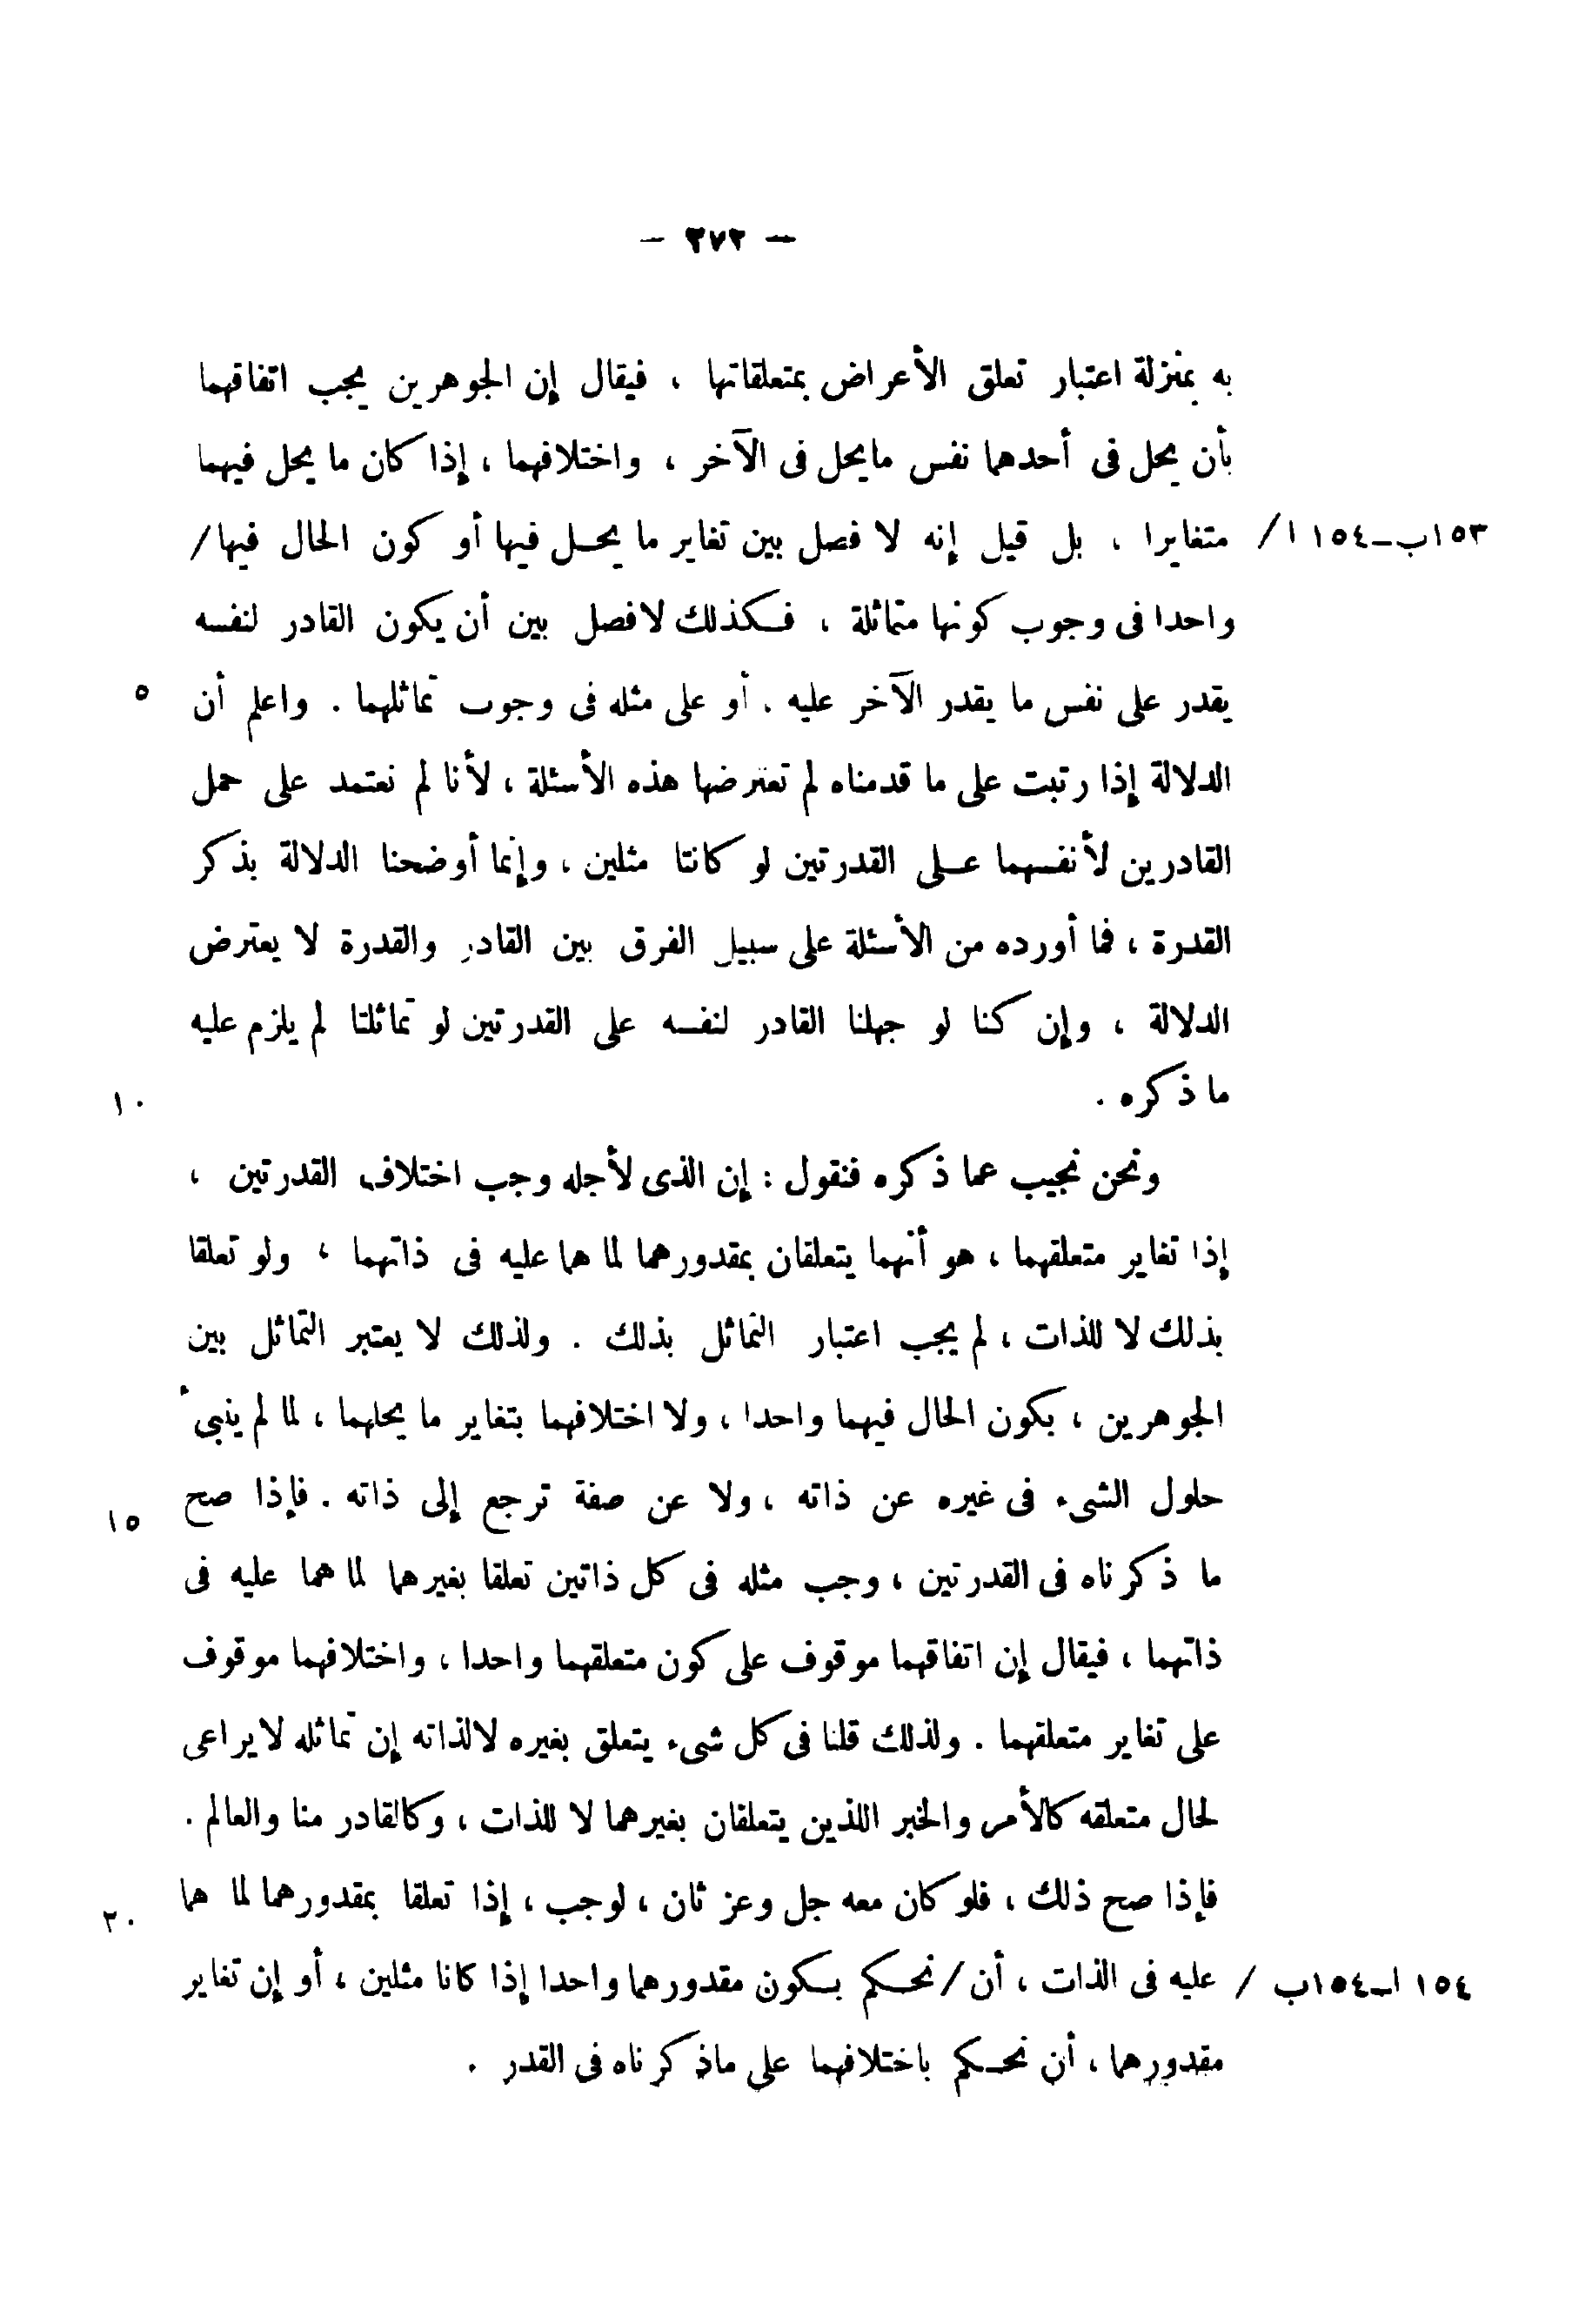 — ٢٧٢ —
به بمنزلة اعتبار تعلق الأعراض بمتعلقاتها ، فيقال إن الجوهرين يجب اتفاقهما
بأن يحل فى أحدهما نفس مايحل فى الآخر ، واختلافهما ، إذا كان ما يحل فيهما
١٥٣ب–١٥٤ ا/ متغايرا ، بل قيل إنه لا فصل بين تغاير ما يحــل فيها أو كون الحال فيها/
واحدا فى وجوب كونها متماثلة ، فــكذلك لافصل بين أن يكون القادر لنفسه
يقدر على نفس ما يقدر الآخر عليه ، أو على مثله فى وجوب تماثلهما . واعلم أن ٥
الدلالة إذا رتبت على ما قدمناه لم تعترضها هذه الأسئلة ، لأنا لم نعتمد على حمل
القادرين لأنفسهما عــلى القدرتين لو كانتا مثلين ، وإنما أوضحنا الدلالة بذكر
القدرة ، فما أورده من الأسئلة على سبيل الفرق بين القادر والقدرة لا يعترض
الدلالة ، وإن كنا لو جهلنا القادر لنفسه على القدرتين لو تماثلتا لم يلزم عليه
ما ذكره . ١٠
ونحن نجيب عما ذكره فنقول : إن الذى لأجله وجب اختلاف القدرتين ،
إذا تغاير متعلقهما ، هو أنهما يتعلقان بمقدورهما لما هما عليه فى ذاتهما ، ولو تعلقا
بذلك لا للذات ، لم يجب اعتبار التماثل بذلك . ولذلك لا يعتبر التماثل بين
الجوهرين ، بكون الحال فيهما واحدا ، ولا اختلافهما بتغاير ما يحلهما ، لما لم ينبىء
حلول الشىء فى غيره عن ذاته ، ولا عن صفة ترجع إلى ذاته . فإذا صح ١٥
ما ذكرناه فى القدرتين ، وجب مثله فى كل ذاتين تعلقا بغيرهما لما هما عليه فى
ذاتهما ، فيقال إن اتفاقهما موقوف على كون متعلقهما واحدا ، واختلافهما موقوف
على تغاير متعلقهما . ولذلك قلنا فى كل شىء يتعلق بغيره لالذاته إن تماثله لايراعى
لحال متعلقه كالأمر والخبر اللذين يتعلقان بغيرهما لا للذات ، وكالقادر منا والعالم .
فإذا صح ذلك ، فلو كان معه جل وعز ثان ، لوجب ، إذا تعلقا بمقدورهما لما هما ٢٠
١٥٤ ا–١٥٤ب / عليه فى الذات ، أن/نحــكم بــكون مقدورهما واحدا إذا كانا مثلين ، أو إن تغاير
مقدورهما ، أن نحــكم باختلافهما على ماذكرناه فى القدر .